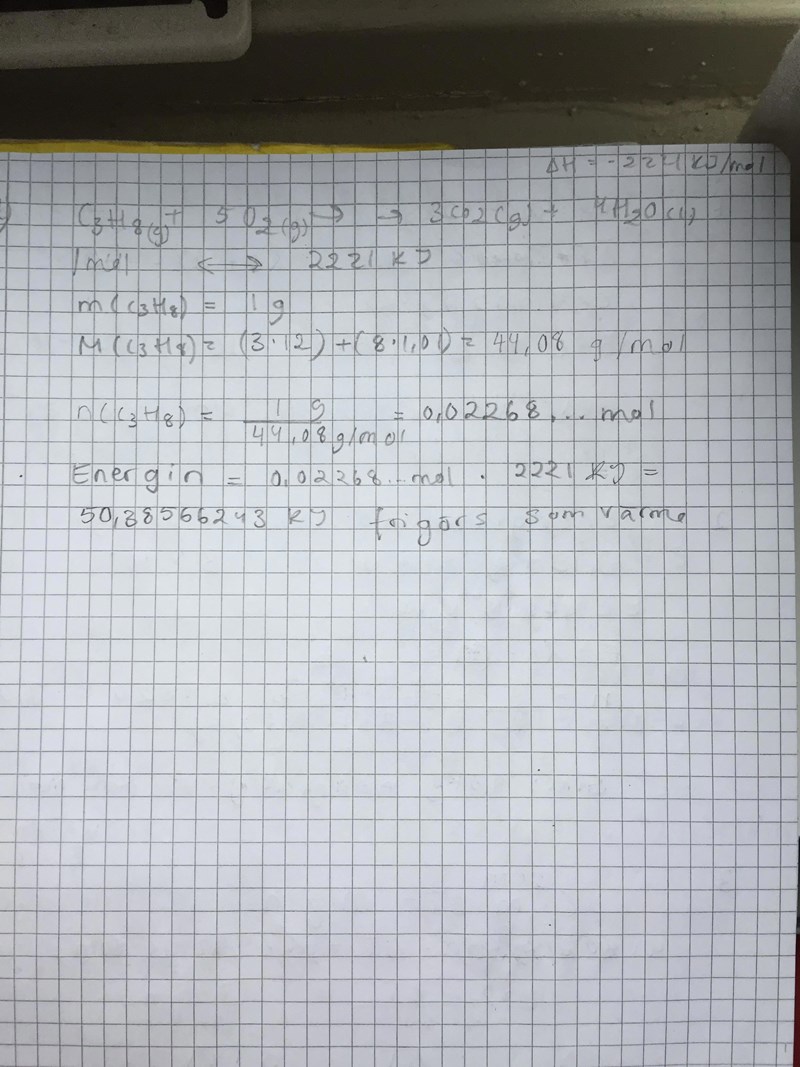 ΔH = -2221 KJ/mol
C3H8(g) + 5O2(g) → → 3CO2(g) + 4H2O(l)
1mol ↔ 2221 KJ
m(C3H8) = 1 g
M(C3H8) = (3·12)+(8·1,01) = 44,08 g/mol
n(C3H8) = 1 g / 44,08 g/mol = 0,02268... mol
Energin = 0,02268...mol · 2221 KJ =
50,38566243 KJ frigörs som värme